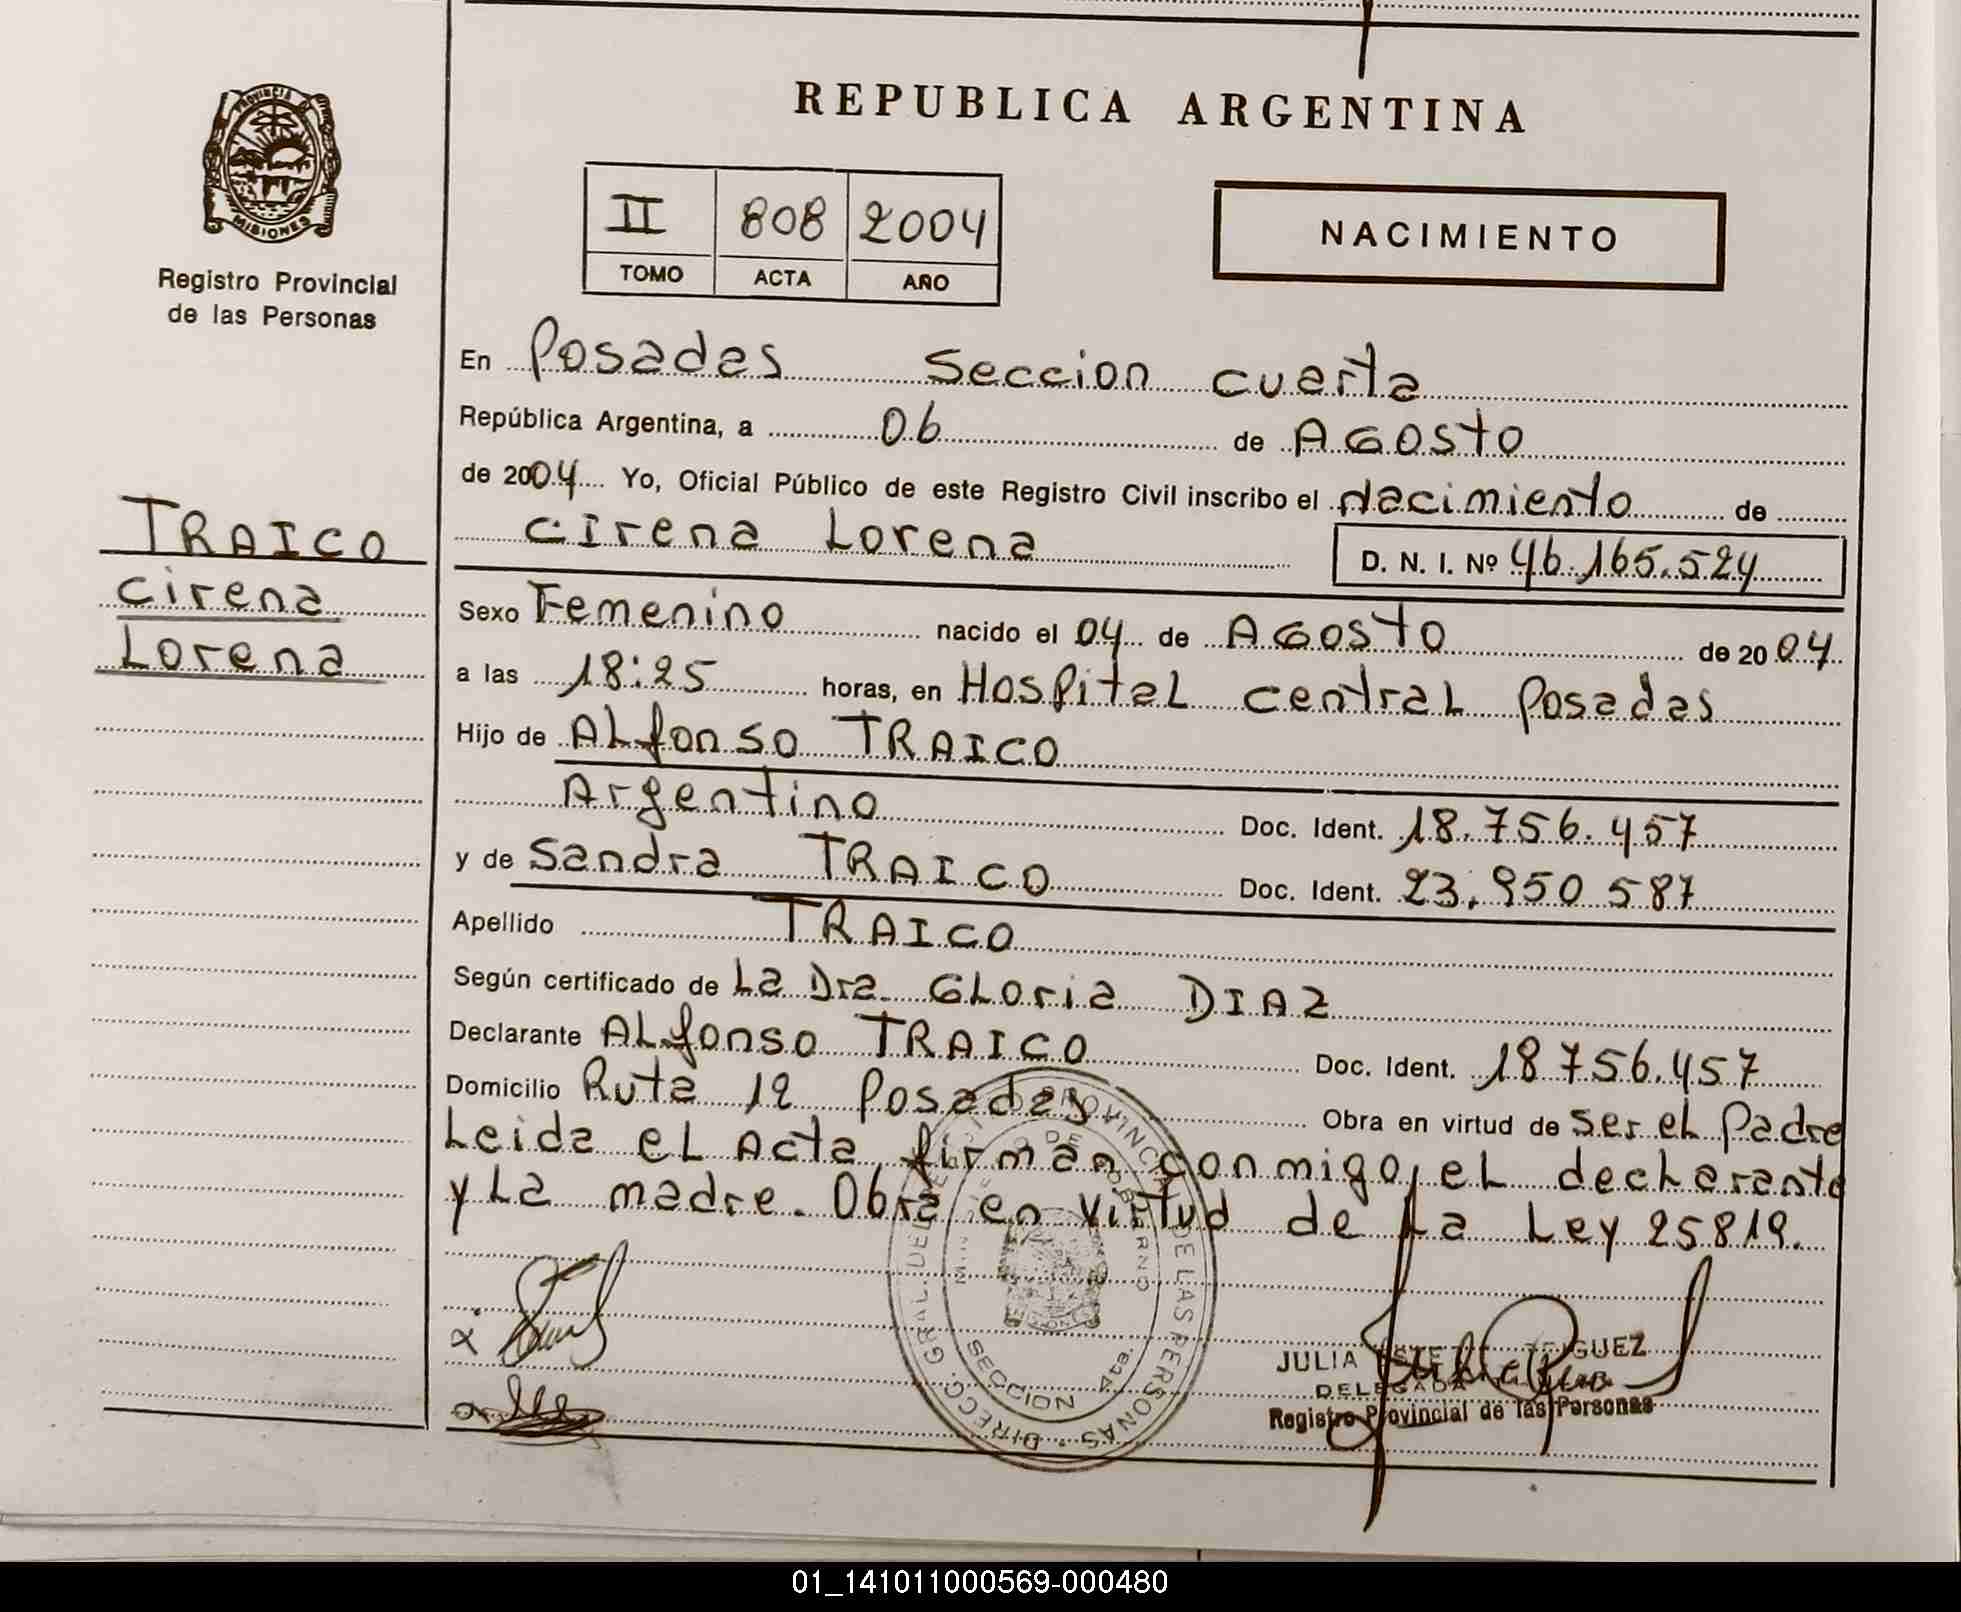 REPUBLICA ARGENTINA
PROVINCIA D
MISIONES
Registro Provincial
de las Personas
II 808 2004
TOMO ACTA AÑO
NACIMIENTO
En Posadas Seccion cuarta
República Argentina, a 06 de AGosto
de 2004 Yo, Oficial Público de este Registro Civil inscribo el Nacimiento de
cirena Lorena D. N. I. Nº 46.165.524
TRAICO
cirena
Lorena
Sexo Femenino nacido el 04 de AGosto de 2004
a las 18:25 horas, en HospitaL centraL Posadas
Hijo de ALfonso TRAICO
Argentino Doc. Ident. 18.756.457
y de Sandra TRAICO Doc. Ident. 23.950 587
Apellido TRAICO
Según certificado de La Dra. GLoria DIAZ
Declarante ALfonso TRAICO Doc. Ident. 18 756.457
Domicilio Ruta 12 Posadas Obra en virtud de Ser eL Padre
Leida eL Acta, firman conmigo, eL decLarante
y La madre. Obra en virtud de La Ley 25819.
DIRECC. GRAL. DEL REGISTRO PROVINCIAL DE LAS PERSONAS
MINISTERIO DE GOBIERNO
SECCION 4ta.
JULIA
DELEGADA
Registro Provincial de las Personas
01_141011000569-000480